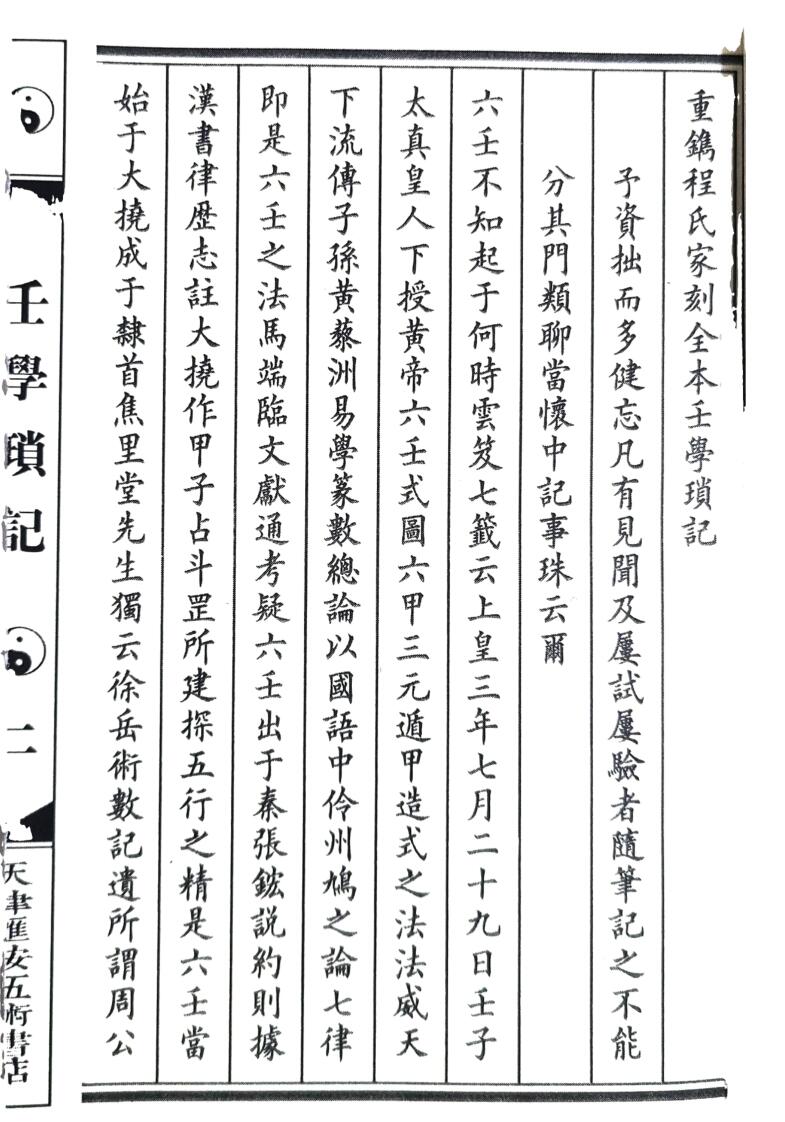 重鐫程氏家刻全本壬學瑣記
予資拙而多健忘凡有見聞及屢試屢驗者隨筆記之不能
分其門類聊當懷中記事珠云爾
六壬不知起于何時雲笈七籤云上皇三年七月二十九日壬子
太真皇人下授黃帝六壬式圖六甲三元遁甲造式之法法威天
下流傳子孫黃藜洲易學篆數總論以國語中伶州鳩之論七律
即是六壬之法馬端臨文獻通考疑六壬出于秦張鋐説約則據
漢書律歷志註大撓作甲子占斗罡所建探五行之精是六壬當
始于大撓成于隸首焦里堂先生獨云徐岳術數記遺所謂周公
壬學瑣記
二
天聿匯安五術書店